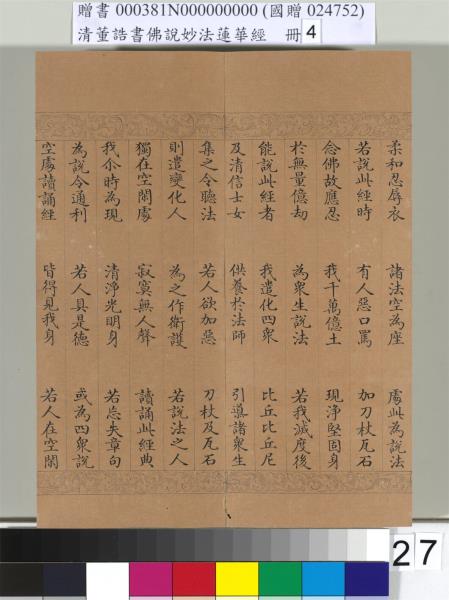 贈書 000381N000000000 (國贈 024752)
清董誥書佛說妙法蓮華經 冊 4
柔和忍辱衣 諸法空為座 處此為說法
若說此經時 有人惡口罵 加刀杖瓦石
念佛故應忍 我千萬億土 現淨堅固身
於無量億劫 為眾生說法 若我滅度後
能說此經者 我遣化四眾 比丘比丘尼
及清信士女 供養於法師 引導諸眾生
集之令聽法 若人欲加惡 刀杖及瓦石
則遣變化人 為之作衛護 若說法之人
獨在空閑處 寂寞無人聲 讀誦此經典
我尒時為現 清淨光明身 若忘失章句
為說令通利 若人具是德 或為四眾說
空處讀誦經 皆得見我身 若人在空閑
27